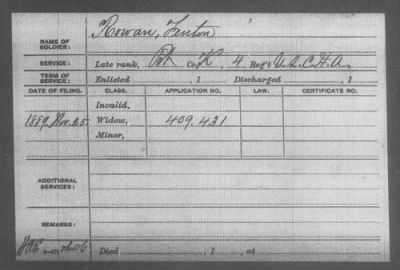 Rowan, Fenton
NAME OF SOLDIER:
SERVICE: Late rank, Pvt Co. K, 4 Reg't U.S.C.H.A.
TERM OF SERVICE: Enlisted , 1 Discharged , 1
DATE OF FILING. CLASS. APPLICATION NO. LAW. CERTIFICATE NO.
Invalid,
1889, Nov. 25 Widow, 409.421
Minor,
ADDITIONAL SERVICES:
REMARKS:
Died , 1 , at